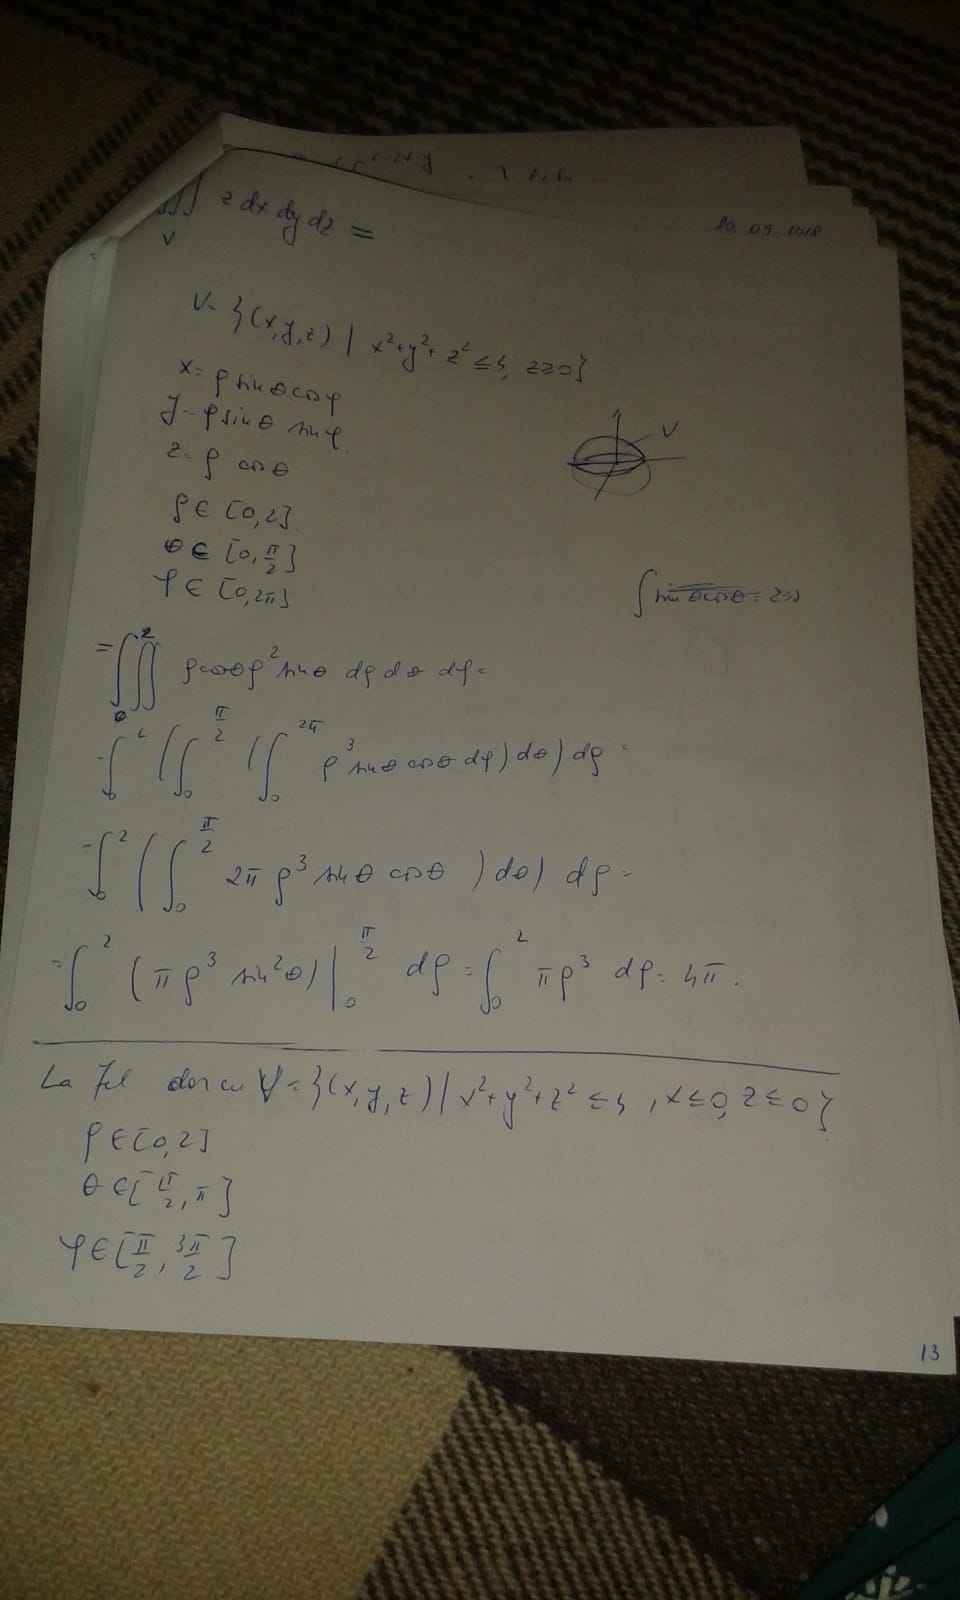 ∫∫∫ z dx dy dz =
V
20.05.2018
V= {(x,y,z) | x²+y²+z² ≤ 4, z≥0}
x= ρ sinθ cosφ
y= ρ sinθ sinφ
z= ρ cosθ
V
ρ ∈ [0,2]
θ ∈ [0, π/2]
φ ∈ [0,2π]
= ∫₀² ∫∫ ρ cosθ ρ² sinθ dρ dθ dφ =
= ∫₀² (∫₀^{π/2} (∫₀^{2π} ρ³ sinθ cosθ dφ) dθ) dρ =
= ∫₀² (∫₀^{π/2} 2π ρ³ sinθ cosθ ) dθ) dρ =
= ∫₀² (π ρ³ sin²θ) |₀^{π/2} dρ = ∫₀² π ρ³ dρ = 4π.
La fel dar cu V= {(x,y,z) | x²+y²+z² ≤ 4, x≤0, z≤0}
ρ ∈ [0,2]
θ ∈ [π/2, π]
φ ∈ [π/2, 3π/2]
13